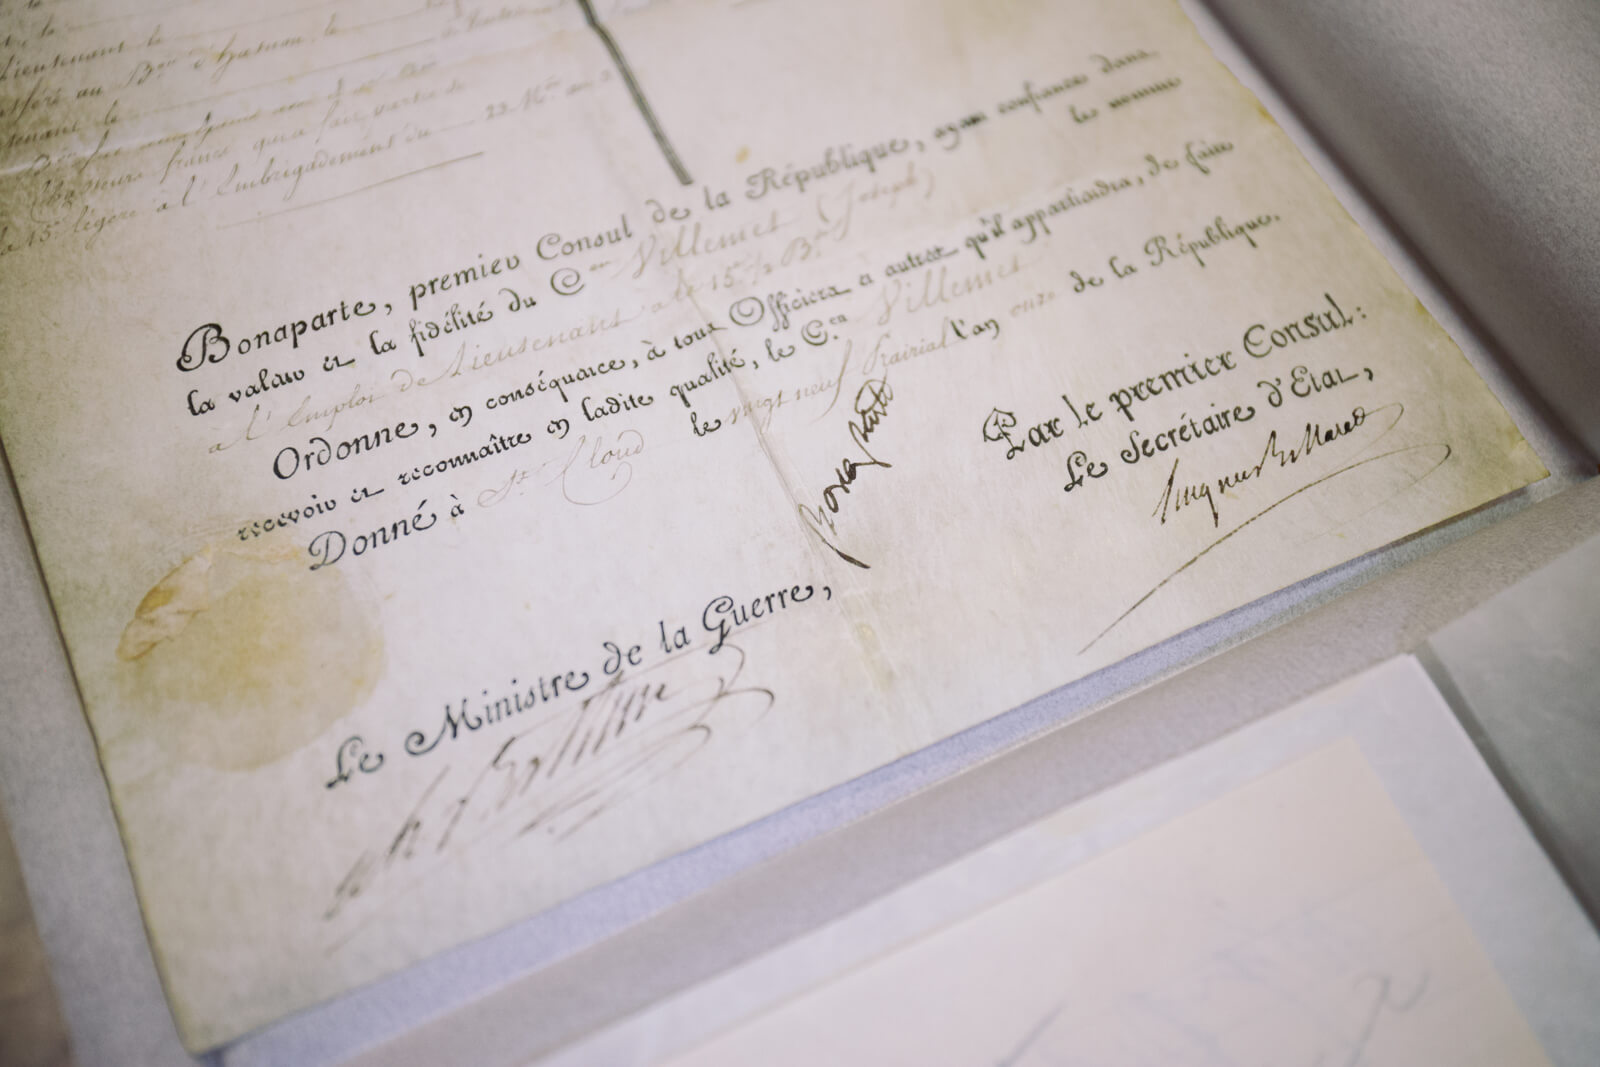 Lieutenant le
au B.on d'
tenant le
francs qui a fait partie de
la 15.e légère à l'Embrigadement du 23
Bonaparte, premier Consul de la République, ayant confiance dans
la valeur et la fidélité du C.en Villemet (Joseph) le nomme
à l'Emploi de Lieutenant à la 15.e ½ B.e
Ordonne, en conséquence, à tous Officiers et autres qu'il appartiendra, de faire
recevoir et reconnaître en ladite qualité, le C.en Villemet
Donné à St. Cloud le vingt neuf Prairial l'an onze de la République.
Bonaparte
Par le premier Consul:
Le Secrétaire d'Etat,
Hugues B. Maret
Le Ministre de la Guerre,